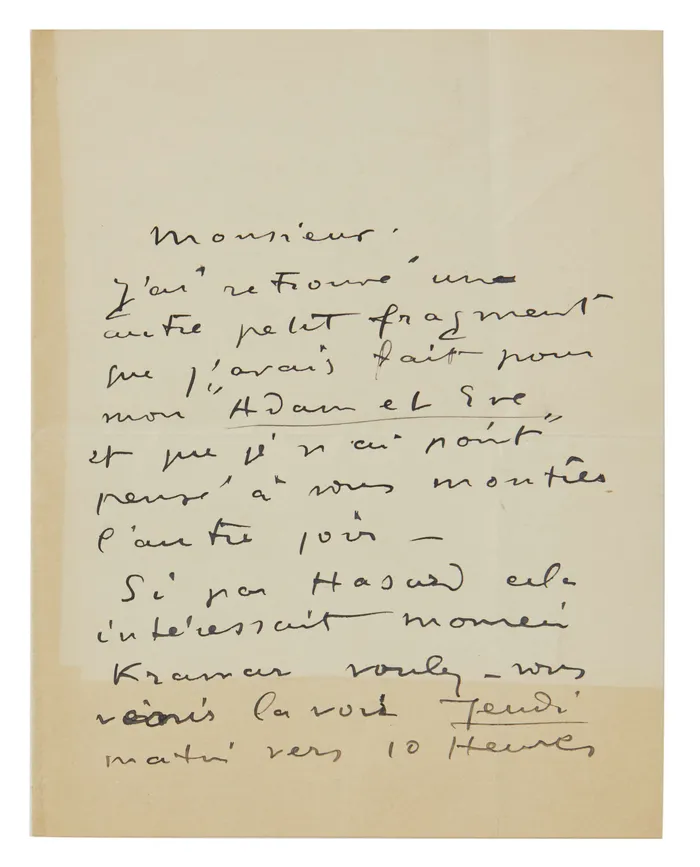 Monsieur.
J'ai retrouvé une
autre petit fragment
que j'avais fait pour
mon "Adam et Eve"
et que je n'ai point
pensé à vous montrer
l'autre jour —
Si par Hasard cela
intéressait monsieur
Kramar voulez-vous
venir la voir Jeudi
matin vers 10 Heures